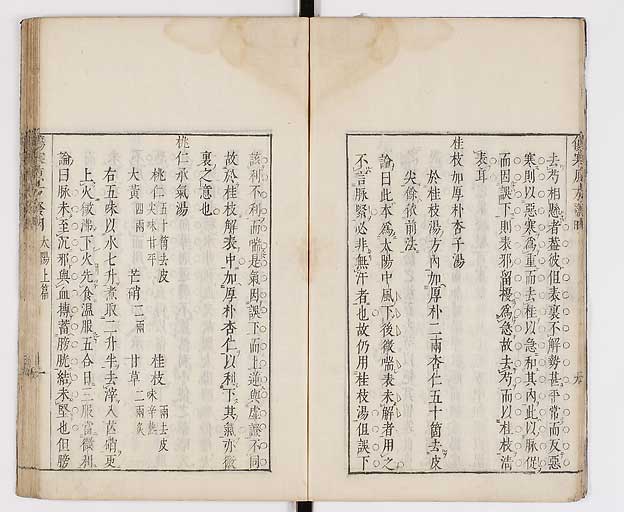 去芍相懸者蓋彼但表裏不解勢甚平常而反惡
寒則以惡寒為重而去桂以急和其內此以脉促
而因誤下則表邪留擾為急故去芍而以桂枝湯
表耳
桂枝加厚朴杏子湯
於桂枝湯方內加厚朴二兩杏仁五十箇去皮
尖餘依前法
論曰此本為太陽中風下後微喘表未解者用之
不言脉緊必非無汗者也故仍用桂枝湯但誤下
該利不利而喘是氣因誤下而上逆與虛證不同
故於桂枝解表中加厚朴杏仁以利下其氣亦微
裏之意也
桃仁承氣湯
桃仁五十箇去皮尖味甘平
桂枝二兩去皮味辛熱
大黃四兩
芒硝二兩
甘草二兩炙
右五味以水七升煮取二升半去滓入芒硝更
上火微沸下火先食溫服五合日三服當微利
論曰脉未至沉邪與血搏蓄膀胱結未堅也但膀
太陽上篇